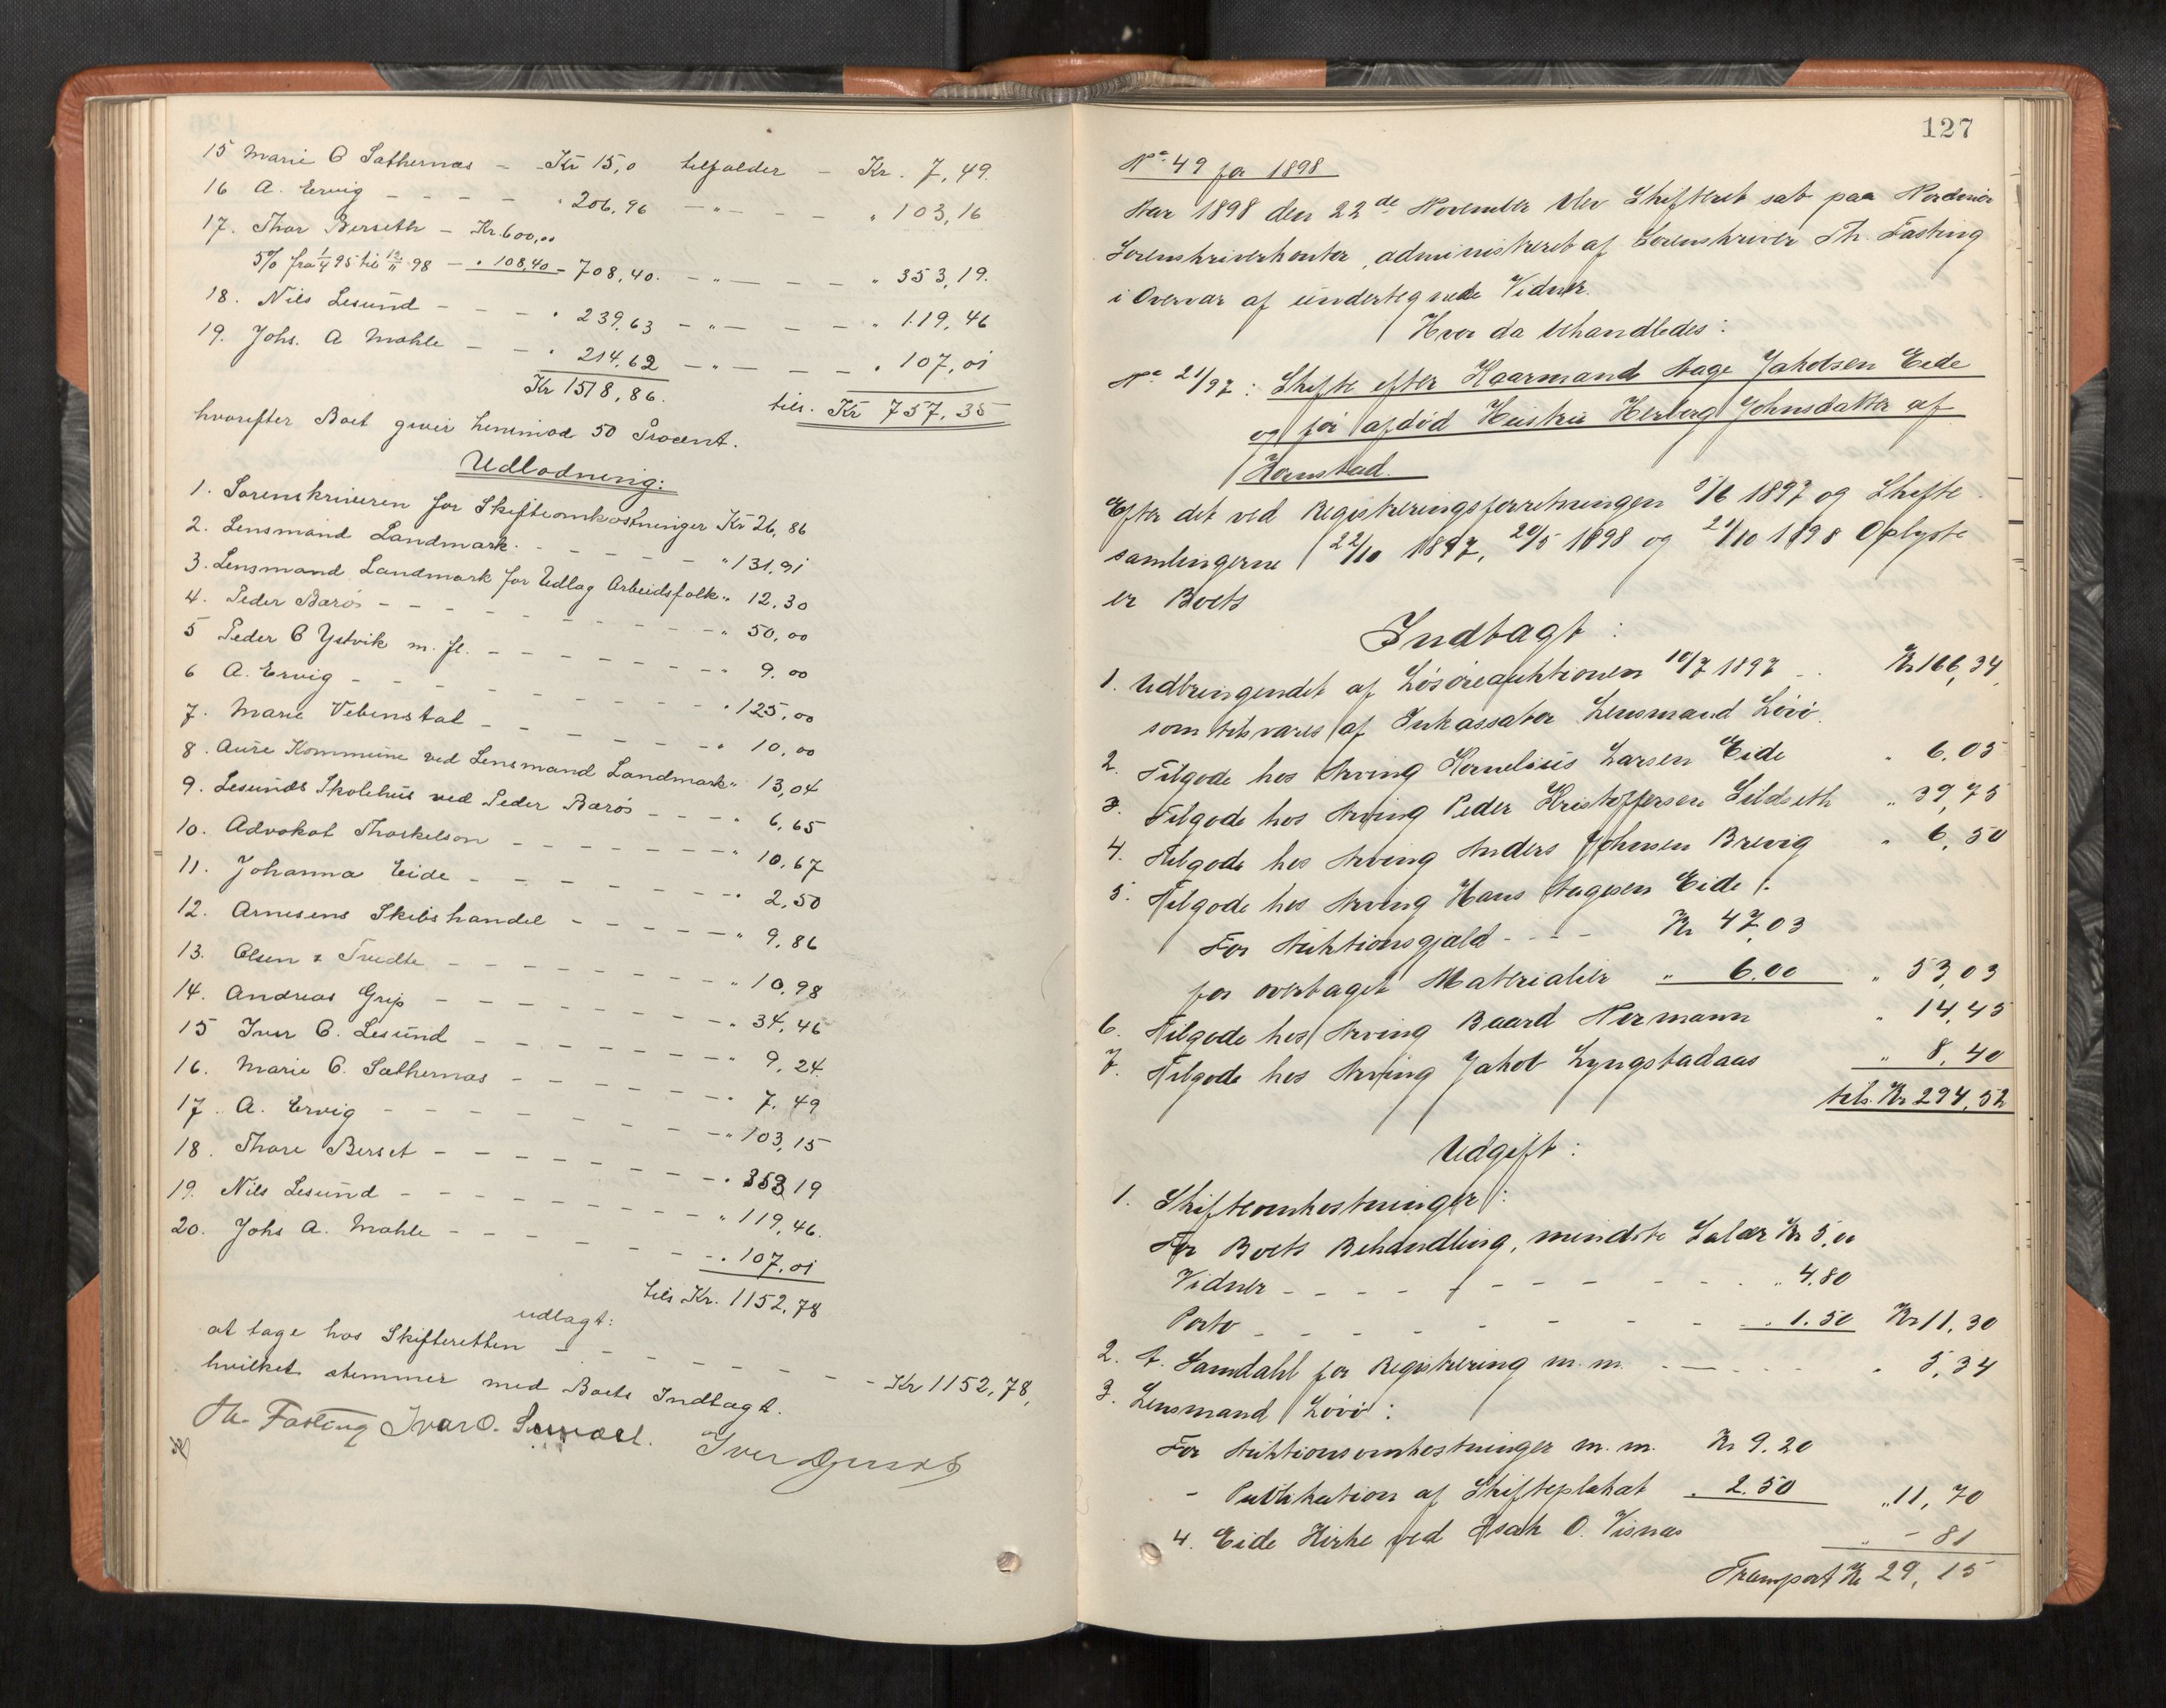 15 Marie O Sæthernæs – Kr 15,0 tilfalder – Kr. 7,49.
16 A. Ervig – – – – " 206,96 – " – – – " 103,16
17. Thor Berseth – Kr. 600,00
5% fra 1/4 95 til 12/11 98 – " 108,40 – 708,40. – " – – – " 353,19.
18. Nils Lesund – – – " 239,63 – " – – – " 119,46
19. Johs. A Mohle – – " 214,62 – " – – – " 107,01
Kr 1518,86. tils. Kr 757,35
hvorefter Boet giver henimod 50 Procent.
Udlodning:
1. Sorenskriveren for Skifteomkostninger Kr 26,86
2. Lensmand Landmark. – – – – – " 131,91
3. Lensmand Landmark for Udlæg Arbeidsfolk " 12,30
4. Peder Barøs – – – – – – – " 50,00
5 Peder O Ystvik m. fl. – – – – – – " 9,00
6 A. Ervig – – – – – – – " 125,00
7. Marie Vebenstal – – – – – – " 10,00
8. Aure Kommune ved Lensmand Landmark " 13,04
9. Lesunds Skolehus ved Peder Barøs – – – " 6,65
10. Advokat Thorkelson – – – – – – " 10,67
11. Johanna Eide – – – – – – – " 2,50
12. Arnesens Skibshandel – – – – – " 9,86
13. Olsen & Tvedte – – – – – – – " 10,98
14. Andreas Grip – – – – – – – " 34,46
15 Iver O. Lesund – – – – – – – " 9,24
16. Marie O. Sæthernæs – – – – – – " 7,49
17. A. Ervig – – – – – – – – " 103,15
18. Thore Berset – – – – – – – " 353,19
19. Nils Lesund – – – – – – – " 119,46.
20. Johs A. Mohle – – – – – – – " 107,01
tils Kr. 1152,78
udlagt:
at tage hos Skifteretten – – – – – – – – Kr 1152,78,
hvilket stemmer med Boets Indtægt.
Th. Fasting Ivar O. Iver
127
No. 49 for 1898
Aar 1898 den 22de November blev Skifteret sat paa Nordmør
Sorenskriverkontor, administreret af Sorenskriver Th. Fasting
i Overvær af undertegnede Vidner.
Hvor da behandledes:
No. 21/97: Skifte efter Kaarmand Aage Jakobsen Eide
og før afdød Hustru Herborg Johnsdatter af
Hornstad.
Efter det ved Registreringsforretningen 9/6 1897 og Skifte
samlingerne 22/10 1897, 20/5 1898 og 21/10 1898 Oplyste
er Boets
Indtægt:
1. Udbringendet af Løsøreauktionen 10/7 1897 – . Kr 166,34,
som tilsvares af Inkassator Lensmand Lövö.
2. Tilgode hos Arving Kornelius Larsen Eide " 6,05
3. Tilgode hos Arving Peder Kristoffersen Sildseth " 39,75
4. Tilgode hos Arving Anders Johnsen Brevig " 6,50
5. Tilgode hos Arving Hans Aagesen Eide:
For Auktionsgjæld – – – – Kr 47,03
for overtaget Materialier " 6,00 " 53,03
6. Tilgode hos Arving Baard Nermann " 14,45
7. Tilgode hos Arving Jakob Lyngstadaas " 8,40
tils. Kr 294,52
Udgift:
1. Skifteomkostninger:
For Boets Behandling, mindste Salær Kr 5,00
Vidner – – – – – – – – – – " 4,80
Porto – – – – – – – – – " 1,50 Kr 11,30
2. A. Samdahl for Registrering m. m. – – – . . " 5,34
3. Lensmand Lövö:
For Auktionsomkostninger m. m. Kr 9,20
– Publikation af Skifteplakat " 2,50 " 11,70
4. Eide Kirke ved Isak O. Visnæs " – 81
Transport Kr 29,15